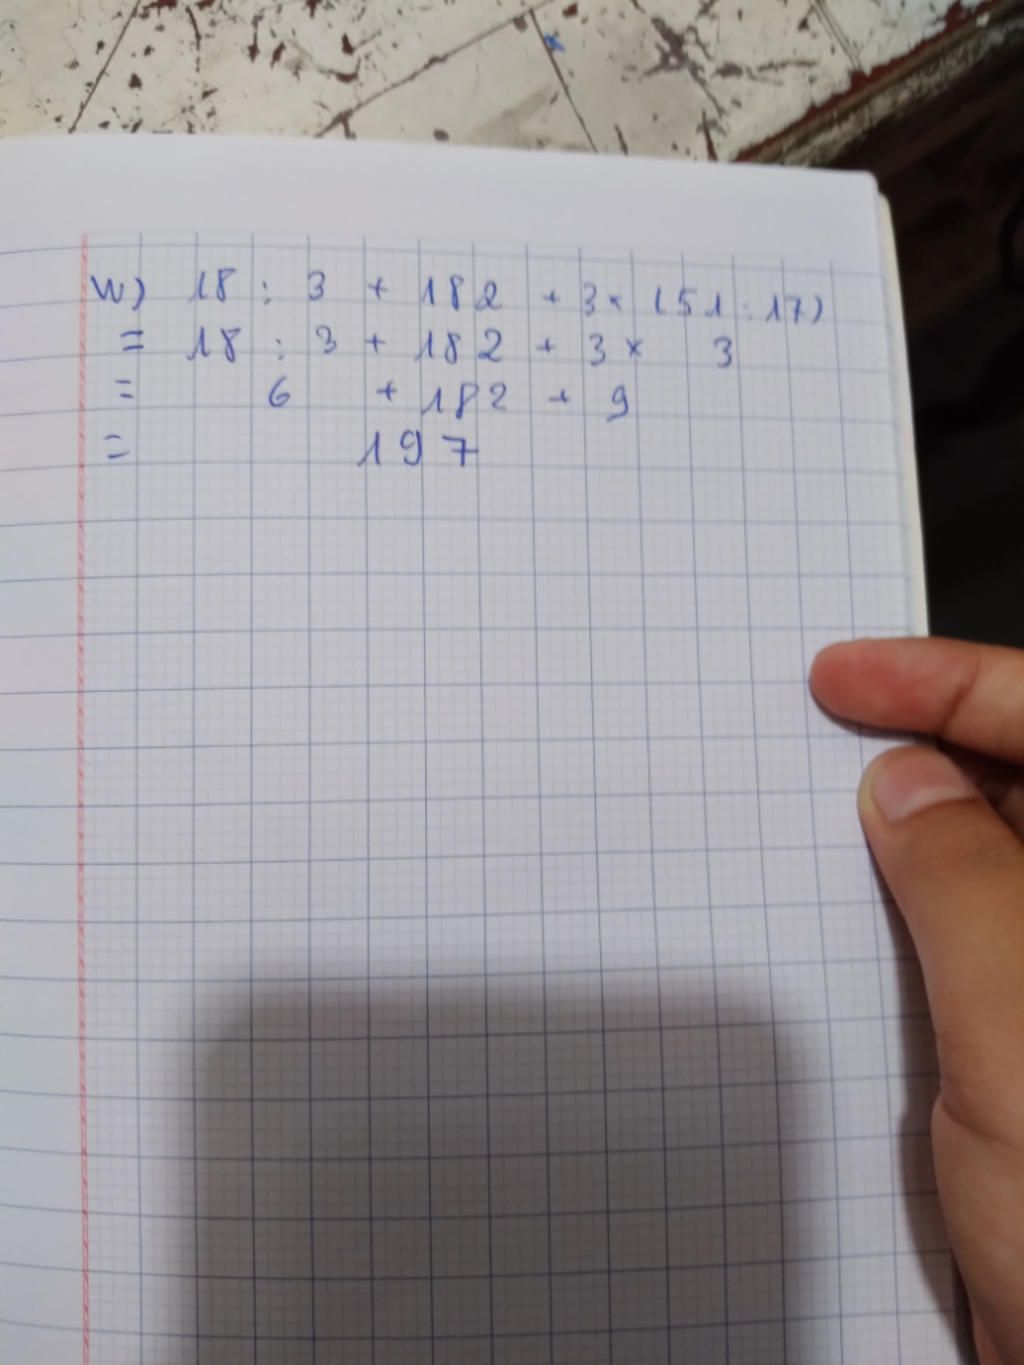 w) 18 : 3 + 182 + 3 × (51 : 17)
= 18 : 3 + 182 + 3 × 3
= 6 + 182 + 9
= 197